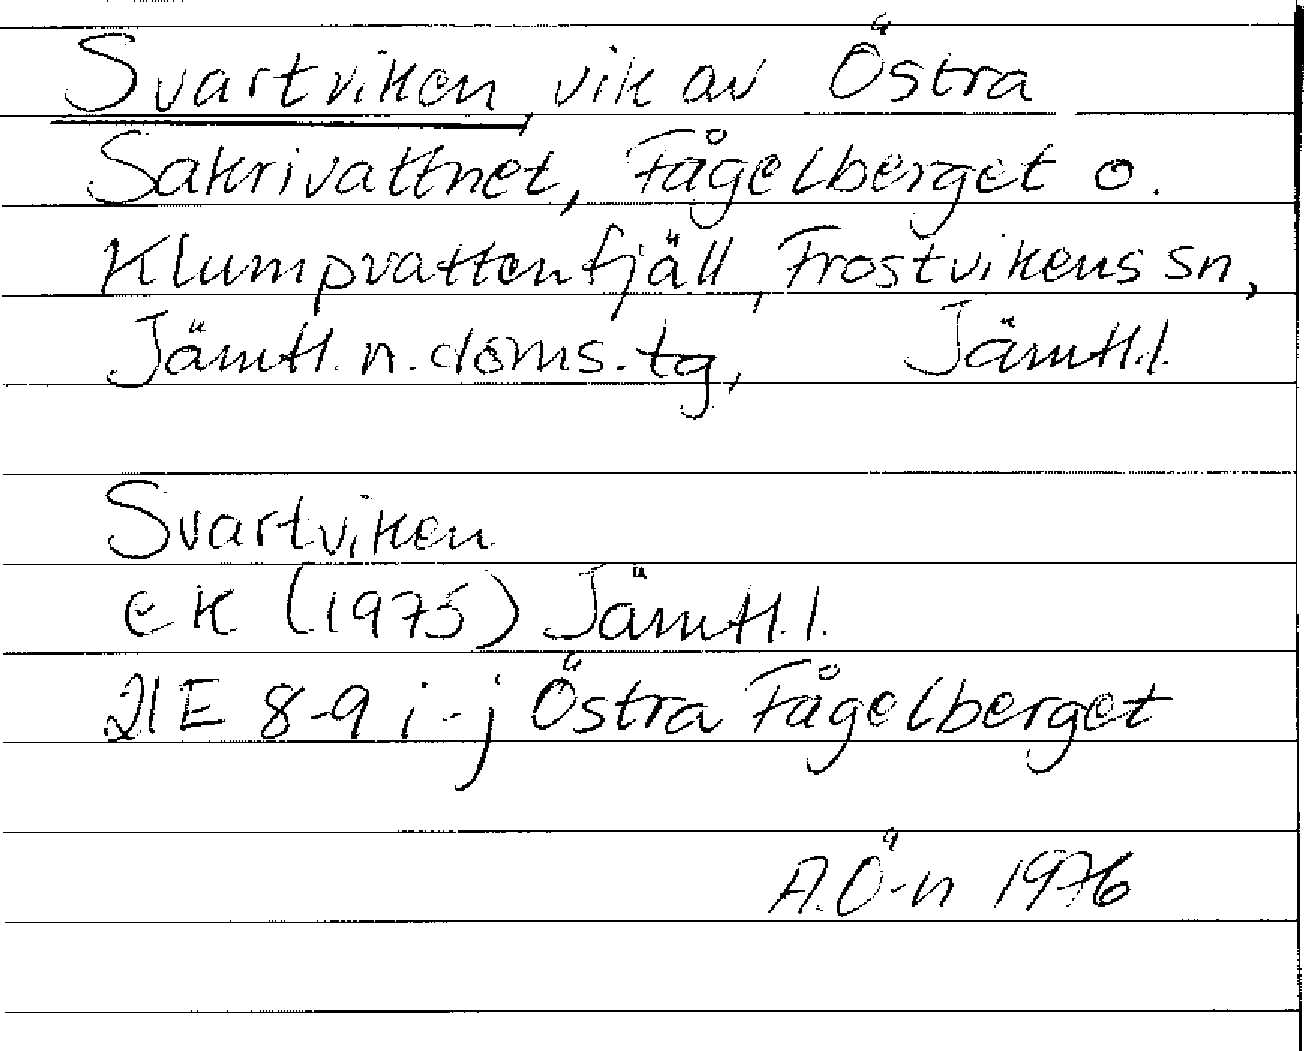 Svartviken, vik av Östra
Sakrivattnet, Fågelberget o.
Klumpvattenfjäll, Frostvikens sn,
Jämtl. n. doms. tg, Jämtl.l.
Svartviken
eK (1975) Jämtl.l.
21E 8-9 i-j Östra Fågelberget
A.Ö-n 1976